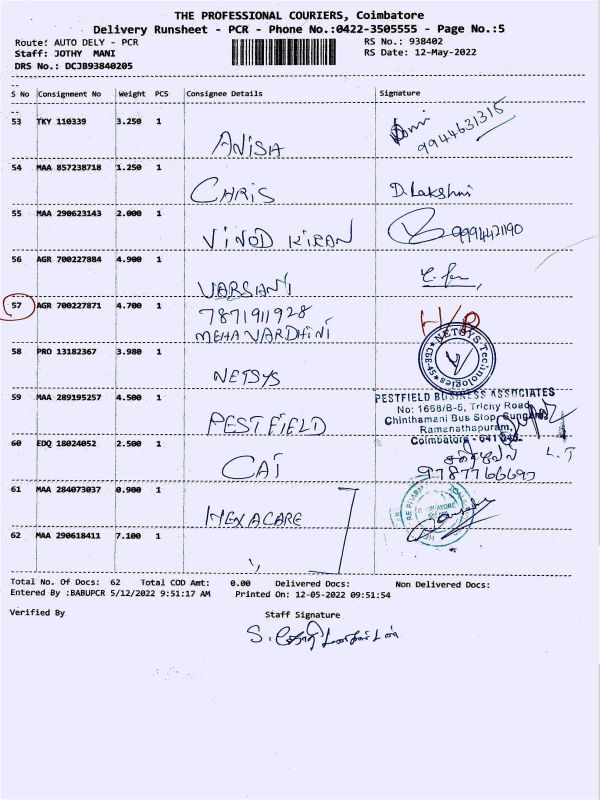 THE PROFESSIONAL COURIERS, Coimbatore
Delivery Runsheet - PCR - Phone No.:0422-3505555 - Page No.:5
Route: AUTO DELY - PCR
RS No.: 938402
Staff: JOTHY MANI
RS Date: 12-May-2022
DRS No.: DCJB93840205
S No Consignment No Weight PCS Consignee Details Signature
53 TKY 110339 3.250 1
ANISH
9944631315
54 MAA 857238718 1.250 1
CHRIS D. Lakshmi
55 MAA 290623143 2.000 1
VINOD KIRAN
56 AGR 700227884 4.900 1
VARSANI
57 AGR 700227871 4.700 1
7871911928
MEHAVARDHINI
H/B
NETSYS Technologies
CBE-45
58 PRO 13182367 3.980 1
NETSYS
59 MAA 289195257 4.500 1
PESTFIELD
PESTFIELD BUSINESS ASSOCIATES
No: 1668/B-5, Trichy Road,
Chinthamani Bus Stop, Sungam,
Ramanathapuram,
Coimbatore - 641 045.
60 EDQ 18024052 2.500 1
CAI
L.T
61 MAA 284073037 0.900 1
HEXACARE
62 MAA 290618411 7.100 1
Total No. Of Docs: 62 Total COD Amt: 0.00 Delivered Docs: Non Delivered Docs:
Entered By :BABUPCR 5/12/2022 9:51:17 AM Printed On: 12-05-2022 09:51:54
Verified By Staff Signature